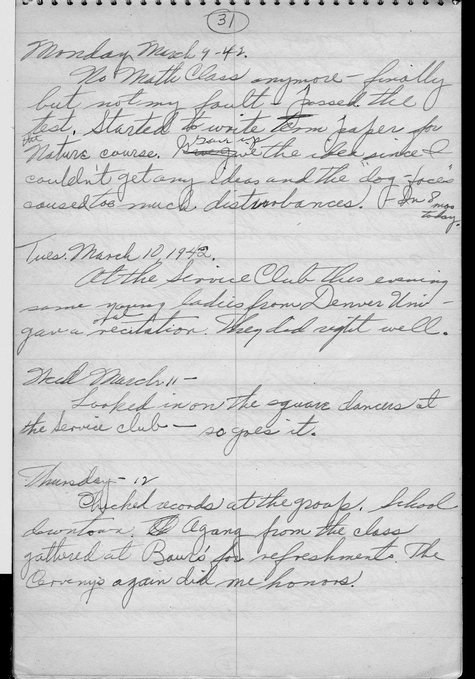 31
Monday March 9-42.
No Math Class anymore - finally
but not my fault - Passed the
test. Started to write term paper for
that Nature course. gave up the idea since I
couldn't get any ideas and the dog-faces
caused too much disturbances. - In 8 mos today.
Tues. March 10, 1942.
At the Service Club this evening
some young ladies from Denver Uni-
gave a recitation. They did right well.
Wed March 11 -
Looked in on the square dancers at
the Service club - so goes it.
Thursday - 12
Checked records at the group. School
downtown. A gang from the class
gathered at Baur's for refreshments. The
Cerveny's again did me honors!